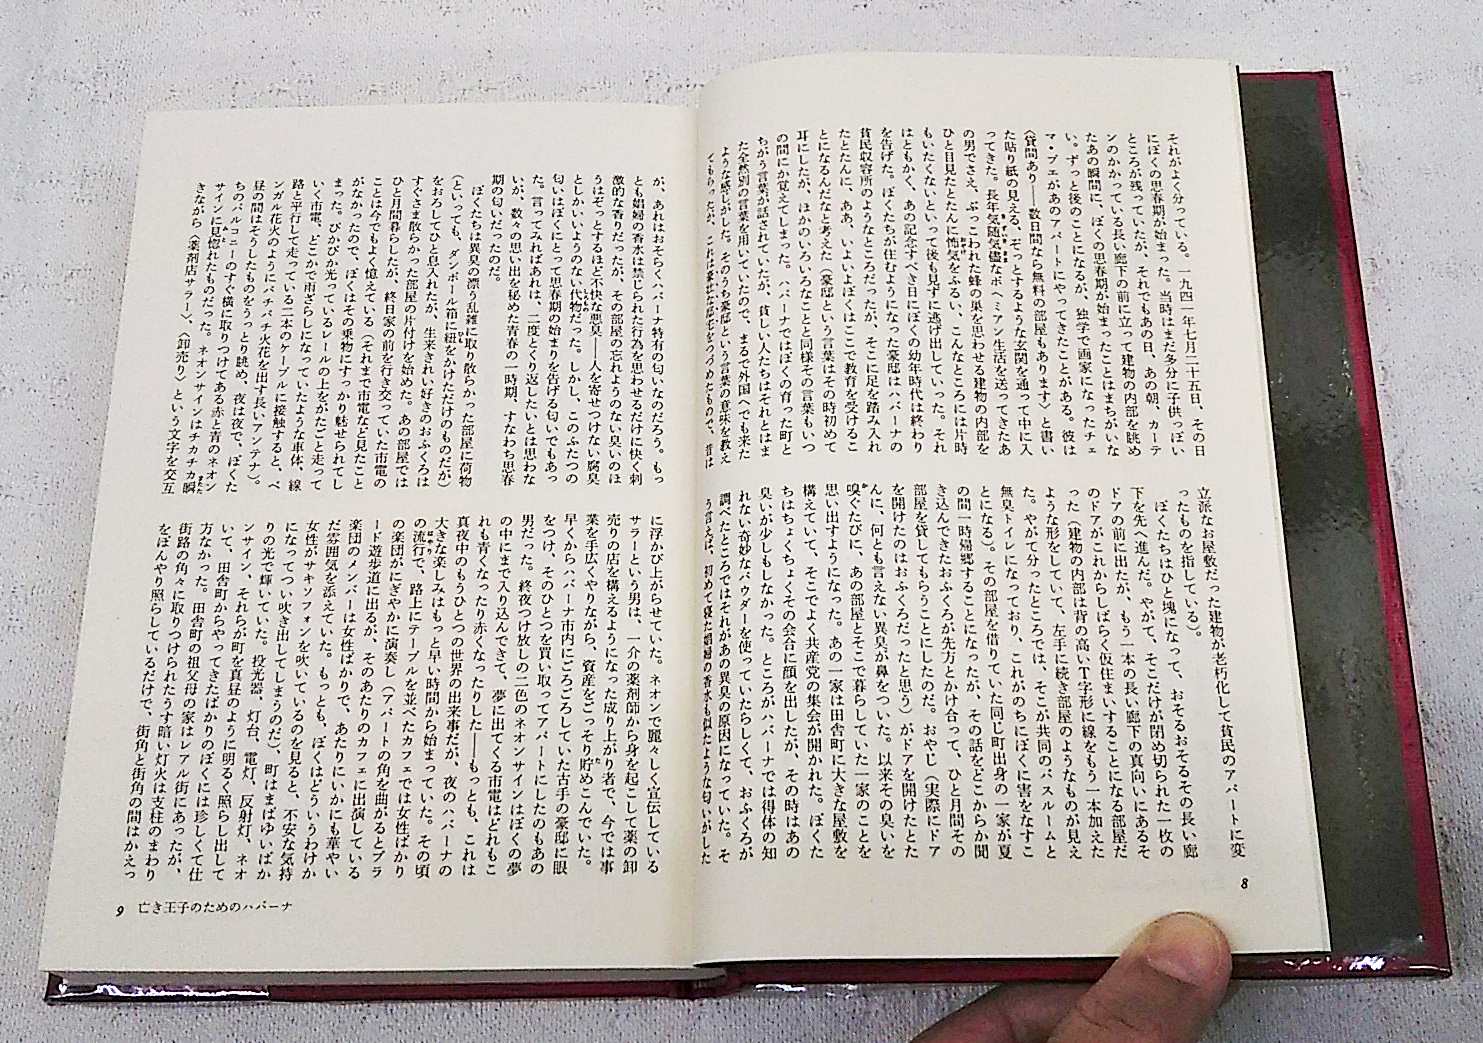 それがよく分っている。一九四一年七月二十五日、その日
にぼくの思春期が始まった。当時はまだ多分に子供っぽい
ところが残っていたが、それでもあの日、あの朝、カーテ
ンのかかっている長い廊下の前に立って建物の内部を眺め
たあの瞬間に、ぼくの思春期が始まったことはまちがいな
い。ずっと後のことになるが、独学で画家になったチェ
マ・ブエがあのアパートにやってきたことがある。彼は
〈貸間あり——数日間なら無料の部屋もあります〉と書い
た貼り紙の見える、ぞっとするような玄関を通って中に入
ってきた。長年気随気儘なボヘミアン生活を送ってきたあ
の男でさえ、ぶっこわれた蜂の巣を思わせる建物の内部を
ひと目見たとたんに怖気をふるい、こんなところには片時
もいたくないといって後も見ずに逃げ出していった。それ
はともかく、あの記念すべき日にぼくの幼年時代は終わり
を告げた。ぼくたちが住むようになった豪邸はハバーナの
貧民収容所のようなところだったが、そこに足を踏み入れ
たとたんに、ああ、いよいよぼくはここで教育を受けるこ
とになるんだなと考えた(豪邸という言葉はその時初めて
耳にしたが、ほかのいろいろなことと同様その言葉もいつ
の間にか覚えてしまった。ハバーナではぼくの育った町と
ちがう言葉が話されていたが、貧しい人たちはそれとはま
た全然別の言葉を用いていたので、まるで外国へでも来た
ような感じがした。そのうち豪邸という言葉の意味を教え
てもらったが、これは邸宅をつづめたもので、昔は
立派なお屋敷だった建物が老朽化して貧民のアパートに変
ったものを指している)。
ぼくたちはひと塊になって、おそるおそるその長い廊
下を先へ進んだ。やがて、そこだけが閉め切られた一枚の
ドアの前に出たが、もう一本の長い廊下の真向いにあるそ
のドアがこれからしばらく仮住まいすることになる部屋だ
った(建物の内部は背の高いT字形に線をもう一本加えた
ような形をしていて、左手に続き部屋のようなものが見え
た。やがて分ったところでは、そこが共同のバスルームと
無臭トイレになっており、これがのちにぼくに害をなすこ
とになる)。その部屋を借りていた同じ町出身の一家が夏
の間一時帰郷することになったが、その話をどこからか聞
き込んできたおふくろが先方とかけ合って、ひと月間その
部屋を貸してもらうことにしたのだ。おやじ(実際にドア
を開けたのはおふくろだったと思う)がドアを開けたとた
んに、何とも言えない異臭が鼻をついた。以来その臭いを
嗅ぐたびに、あの部屋とそこで暮らしていた一家のことを
思い出すようになった。あの一家は田舎町に大きな屋敷を
構えていて、そこでよく共産党の集会が開かれた。ぼくた
ちはちょくちょくその会合に顔を出したが、その時はあの
臭いが少しもしなかった。ところがハバーナでは得体の知
れない奇妙なパウダーを使っていたらしくて、おふくろが
調べたところではそれがあの異臭の原因になっていた。そ
う言えば、初めて寝た娼婦の香水も似たような匂いがした
8
が、あれはおそらくハバーナ特有の匂いなのだろう。もっ
とも娼婦の香水は禁じられた行為を思わせるだけに快く刺
激的な香りだったが、その部屋の忘れようのない臭いのほ
うはぞっとするほど不快な悪臭——人を寄せつけない腐臭
としかいいようのない代物だった。しかし、このふたつの
匂いはぼくにとって思春期の始まりを告げる匂いでもあっ
た。言ってみればあれは、二度とくり返したいとは思わな
いが、数々の思い出を秘めた青春の一時期、すなわち思春
期の匂いだったのだ。
ぼくたちは異臭の漂う乱雑に取り散らかった部屋に荷物
(といっても、ダンボール箱に紐をかけただけのものだが)
をおろしてひと息入れたが、生来きれい好きのおふくろは
すぐさま散らかった部屋の片付けを始めた。あの部屋では
ひと月間暮らしたが、終日家の前を行き交っていた市電の
ことは今でもよく憶えている(それまで市電など見たこと
がなかったので、ぼくはその乗物にすっかり魅せられてし
まった。ぴかぴか光っているレールの上をがたごと走って
いく市電、どこかで雨ざらしになっていたような車体、線
路と平行して走っている二本のケーブルに接触すると、ベ
ンガル花火のようにパチパチ火花を出す長いアンテナ)。
昼の間はそうしたものをうっとり眺め、夜は夜で、ぼくた
ちのバルコニーのすぐ横に取りつけてある赤と青のネオン
サインに見惚れたものだった。ネオンサインはチカチカ瞬
きながら〈薬剤店サラー〉、〈卸売り〉という文字を交互
に浮かび上がらせていた。ネオンで麗々しく宣伝している
サラーという男は、一介の薬剤師から身を起こして薬の卸
売りの店を構えるようになった成り上がり者で、今では事
業を手広くやりながら、資産をごっそり貯めこんでいた。
早くからハバーナ市内にごろごろしていた古手の豪邸に眼
をつけ、そのひとつを買い取ってアパートにしたのもあの
男だった。終夜つけ放しの二色のネオンサインはぼくの夢
の中にまで入り込んできて、夢に出てくる市電はどれもこ
れも青くなったり赤くなったりした——もっとも、これは
真夜中のもうひとつの世界の出来事だが、夜のハバーナの
大きな楽しみはもっと早い時間から始まっていた。その頃
の流行で、路上にテーブルを並べたカフェでは女性ばかり
の楽団がにぎやかに演奏し(アパートの角を曲がるとプラ
ード遊歩道に出るが、そのあたりのカフェに出演している
楽団のメンバーは女性ばかりで、あたりにいかにも華やい
だ雰囲気を添えていた。もっとも、ぼくはどういうわけか
女性がサキソフォンを吹いているのを見ると、不安な気持
になってつい吹き出してしまうのだ)、町はまばゆいばか
りの光で輝いていた。投光器、灯台、電灯、反射灯、ネオ
ンサイン、それらが町を真昼のように明るく照らし出して
いて、田舎町からやってきたばかりのぼくには珍しくて仕
方なかった。田舎町の祖父母の家はレアル街にあったが、
街路の角々に取りつけられたうす暗い灯火は支柱のまわり
をぼんやり照らしているだけで、街角と街角の間はかえっ
9 亡き王子のためのハバーナ